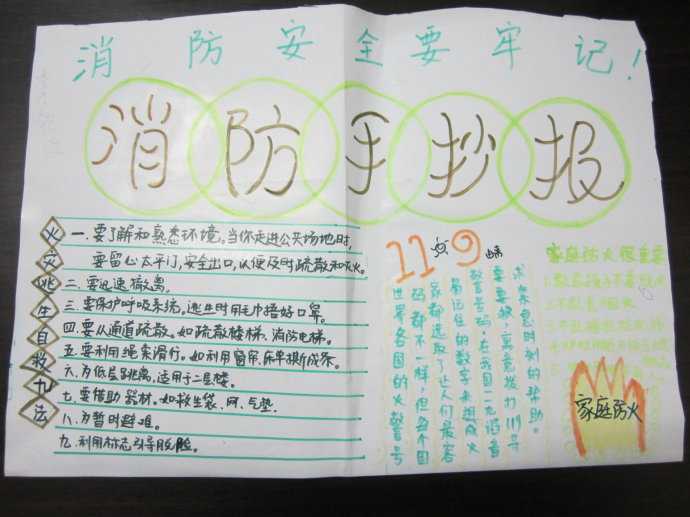 消防安全要牢记！
消防手抄报
火灾逃生自救九法
一.要了解和熟悉环境。当你走进公共场地时，
要留心太平门，安全出口，以便及时疏散和灭火。
二.要迅速撤离。
三.要保护呼吸系统，逃生时用毛巾捂好口罩。
四.要从通道疏散。如疏散楼梯、消防电梯。
五.要利用绳索滑行。如利用窗帘、床单撕成条。
六.为低层跳离，适用于二层楼。
七.要借助器材。如救生袋、网、气垫.
八.为暂时避难。
九.利用标志引导脱险。
119
世界各国的火警号
码都不一样，但每个国
家都选取了让人们最容
易记住的数字来组成火
警号码，在我国一九谐音
要要救，寓意拨打119寻
求来息时刻的帮助。
家庭防火很重要
家庭防火